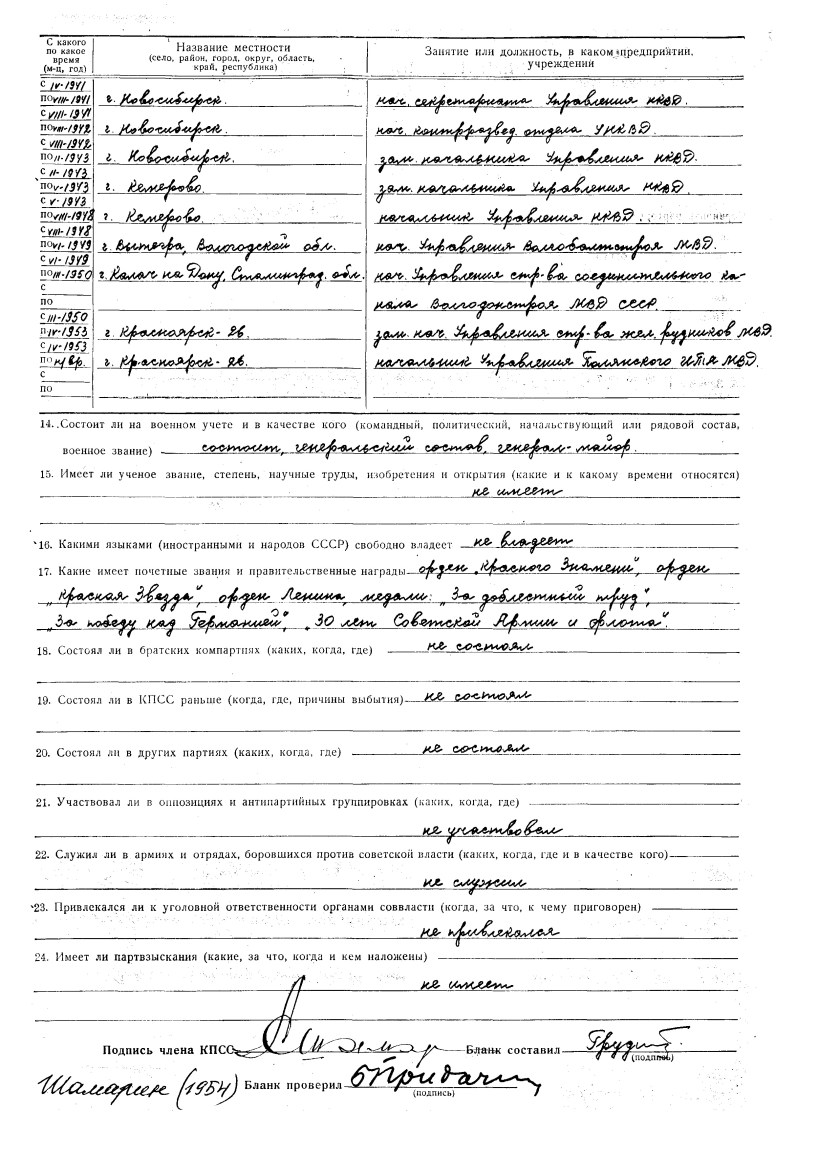 С какого по какое время (м-ц, год) Название местности (село, район, город, округ, область, край, республика) Занятие или должность, в каком предприятии, учреждении
с IV-1941
по VIII-1941 г. Новосибирск. нач. секретариата Управления НКВД.
с VIII-1941
по VIII-1942 г. Новосибирск. нач. контрразвед. отдела УНКВД.
с VIII-1942
по II-1943 г. Новосибирск. зам. начальника Управления НКВД.
с II-1943
по V-1943 г. Кемерово. зам. начальника Управления НКВД.
с V-1943
по VIII-1948 г. Кемерово. начальник Управления НКВД.
с VIII-1948
по VI-1949 г. Вытегра, Вологодской обл. нач. Управления Волгобалтстроя МВД.
с VI-1949
по III-1950 г. Калач на Дону, Сталинград. обл. нач. Управления стр-ва соединительного ка-
с
по нала Волгодонстроя МВД СССР.
с III-1950
по IV-1953 г. Красноярск-26. зам. нач. Управления стр-ва жел. рудников МВД.
с IV-1953
по н/вр. г. Красноярск-26. начальник Управления Полянского ИТЛ МВД.
с
по
14. Состоит ли на военном учете и в качестве кого (командный, политический, начальствующий или рядовой состав,
военное звание) состоит, генеральский состав, генерал-майор.
15. Имеет ли ученое звание, степень, научные труды, изобретения и открытия (какие и к какому времени относятся)
не имеет
16. Какими языками (иностранными и народов СССР) свободно владеет не владеет
17. Какие имеет почетные звания и правительственные награды орден „Красного Знамени", орден
„Красная Звезда", орден Ленина, медали: „За доблестный труд",
„За победу над Германией", „30 лет Советской Армии и флота".
18. Состоял ли в братских компартиях (каких, когда, где) не состоял
19. Состоял ли в КПСС раньше (когда, где, причины выбытия) не состоял
20. Состоял ли в других партиях (каких, когда, где) не состоял
21. Участвовал ли в оппозициях и антипартийных группировках (каких, когда, где)
не участвовал
22. Служил ли в армиях и отрядах, боровшихся против советской власти (каких, когда, где и в качестве кого)
не служил
23. Привлекался ли к уголовной ответственности органами соввласти (когда, за что, к чему приговорен)
не привлекался
24. Имеет ли партвзыскания (какие, за что, когда и кем наложены)
не имеет
Подпись члена КПСС Бланк составил
(подпись)
Шамарин (1954) Бланк проверил
(подпись)